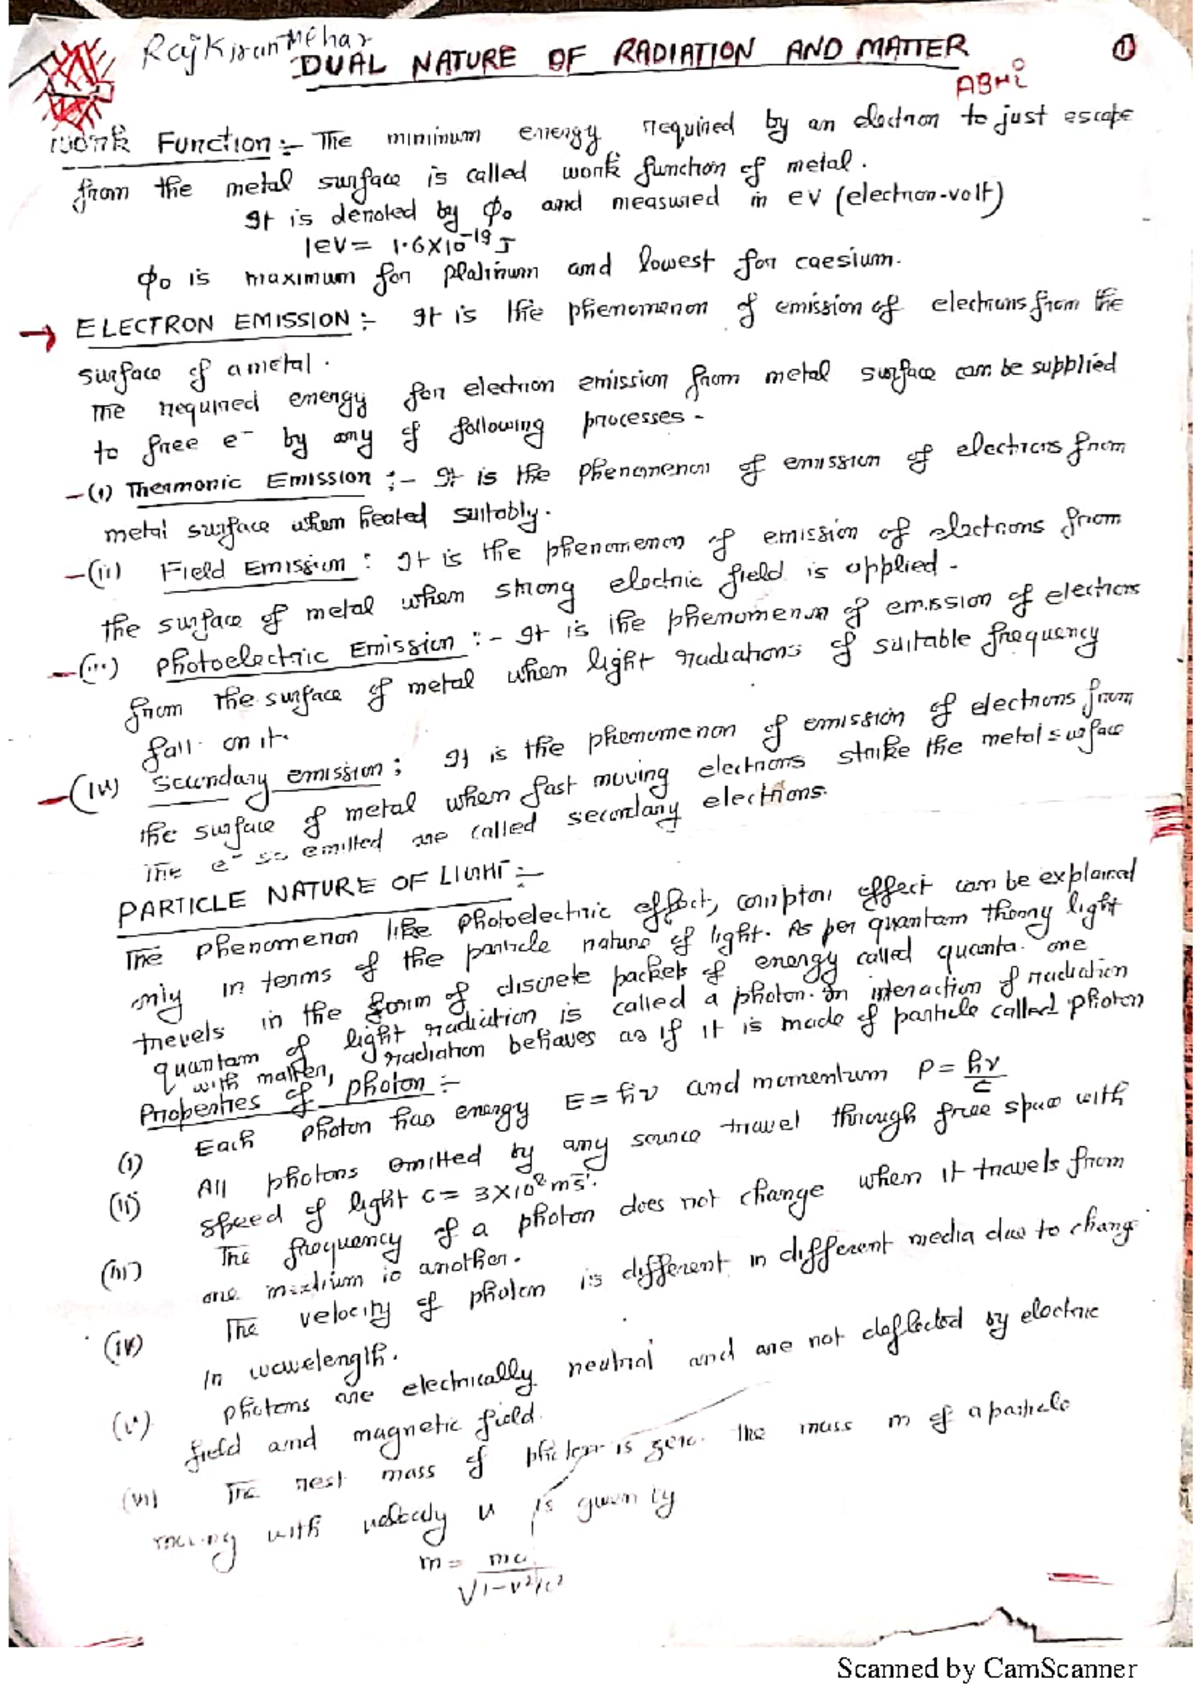 Rajkiran Mehar
DUAL NATURE OF RADIATION AND MATTER
1
ABHi
Work Function :- The minimum energy required by an electron to just escape
from the metal surface is called work function of metal.
It is denoted by ϕ₀ and measured in eV (electron-volt)
1eV = 1.6×10⁻¹⁹ J
ϕ₀ is maximum for platinum and lowest for caesium.
→ ELECTRON EMISSION :- It is the phenomenon of emission of electrons from the
surface of a metal.
The required energy for electron emission from metal surface can be supplied
to free e⁻ by any of following processes -
-(i) Thermonic Emission :- It is the phenomenon of emission of electrons from
metal surface when heated suitably.
-(ii) Field Emission : It is the phenomenon of emission of electrons from
the surface of metal when strong electric field is applied -
-(iii) Photoelectric Emission :- It is the phenomenon of emission of electrons
from the surface of metal when light radiations of suitable frequency
fall on it.
-(iv) Secondary emission ; It is the phenomenon of emission of electrons from
the surface of metal when fast moving electrons strike the metal surface
The e⁻ so emitted are called secondary electrons.
PARTICLE NATURE OF LIGHT :-
The phenomenon like photoelectric effect, compton effect can be explained
only in terms of the particle nature of light. As per quantam theory light
trevels in the form of discrete packets of energy called quanta. one
quantam of light radiation is called a photon. In interaction of radiation
with matter, radiation behaves as if it is made of particle called photon
Properties of photon :-
(i) Each photon has energy E = hν and momentum P = hν/c
(ii) All photons emitted by any source travel through free space with
speed of light c = 3×10⁸ ms⁻¹.
(iii) The frequency of a photon does not change when it travels from
one medium to another.
(iv) The velocity of photon is different in different media due to change
in wavelength.
(v) photons are electrically neutral and are not deflected by electric
field and magnetic field.
(vi) The rest mass of photon is zero. The mass m of a particle
moving with velocity v is given by
m = m₀/√1-v²/c²
Scanned by CamScanner